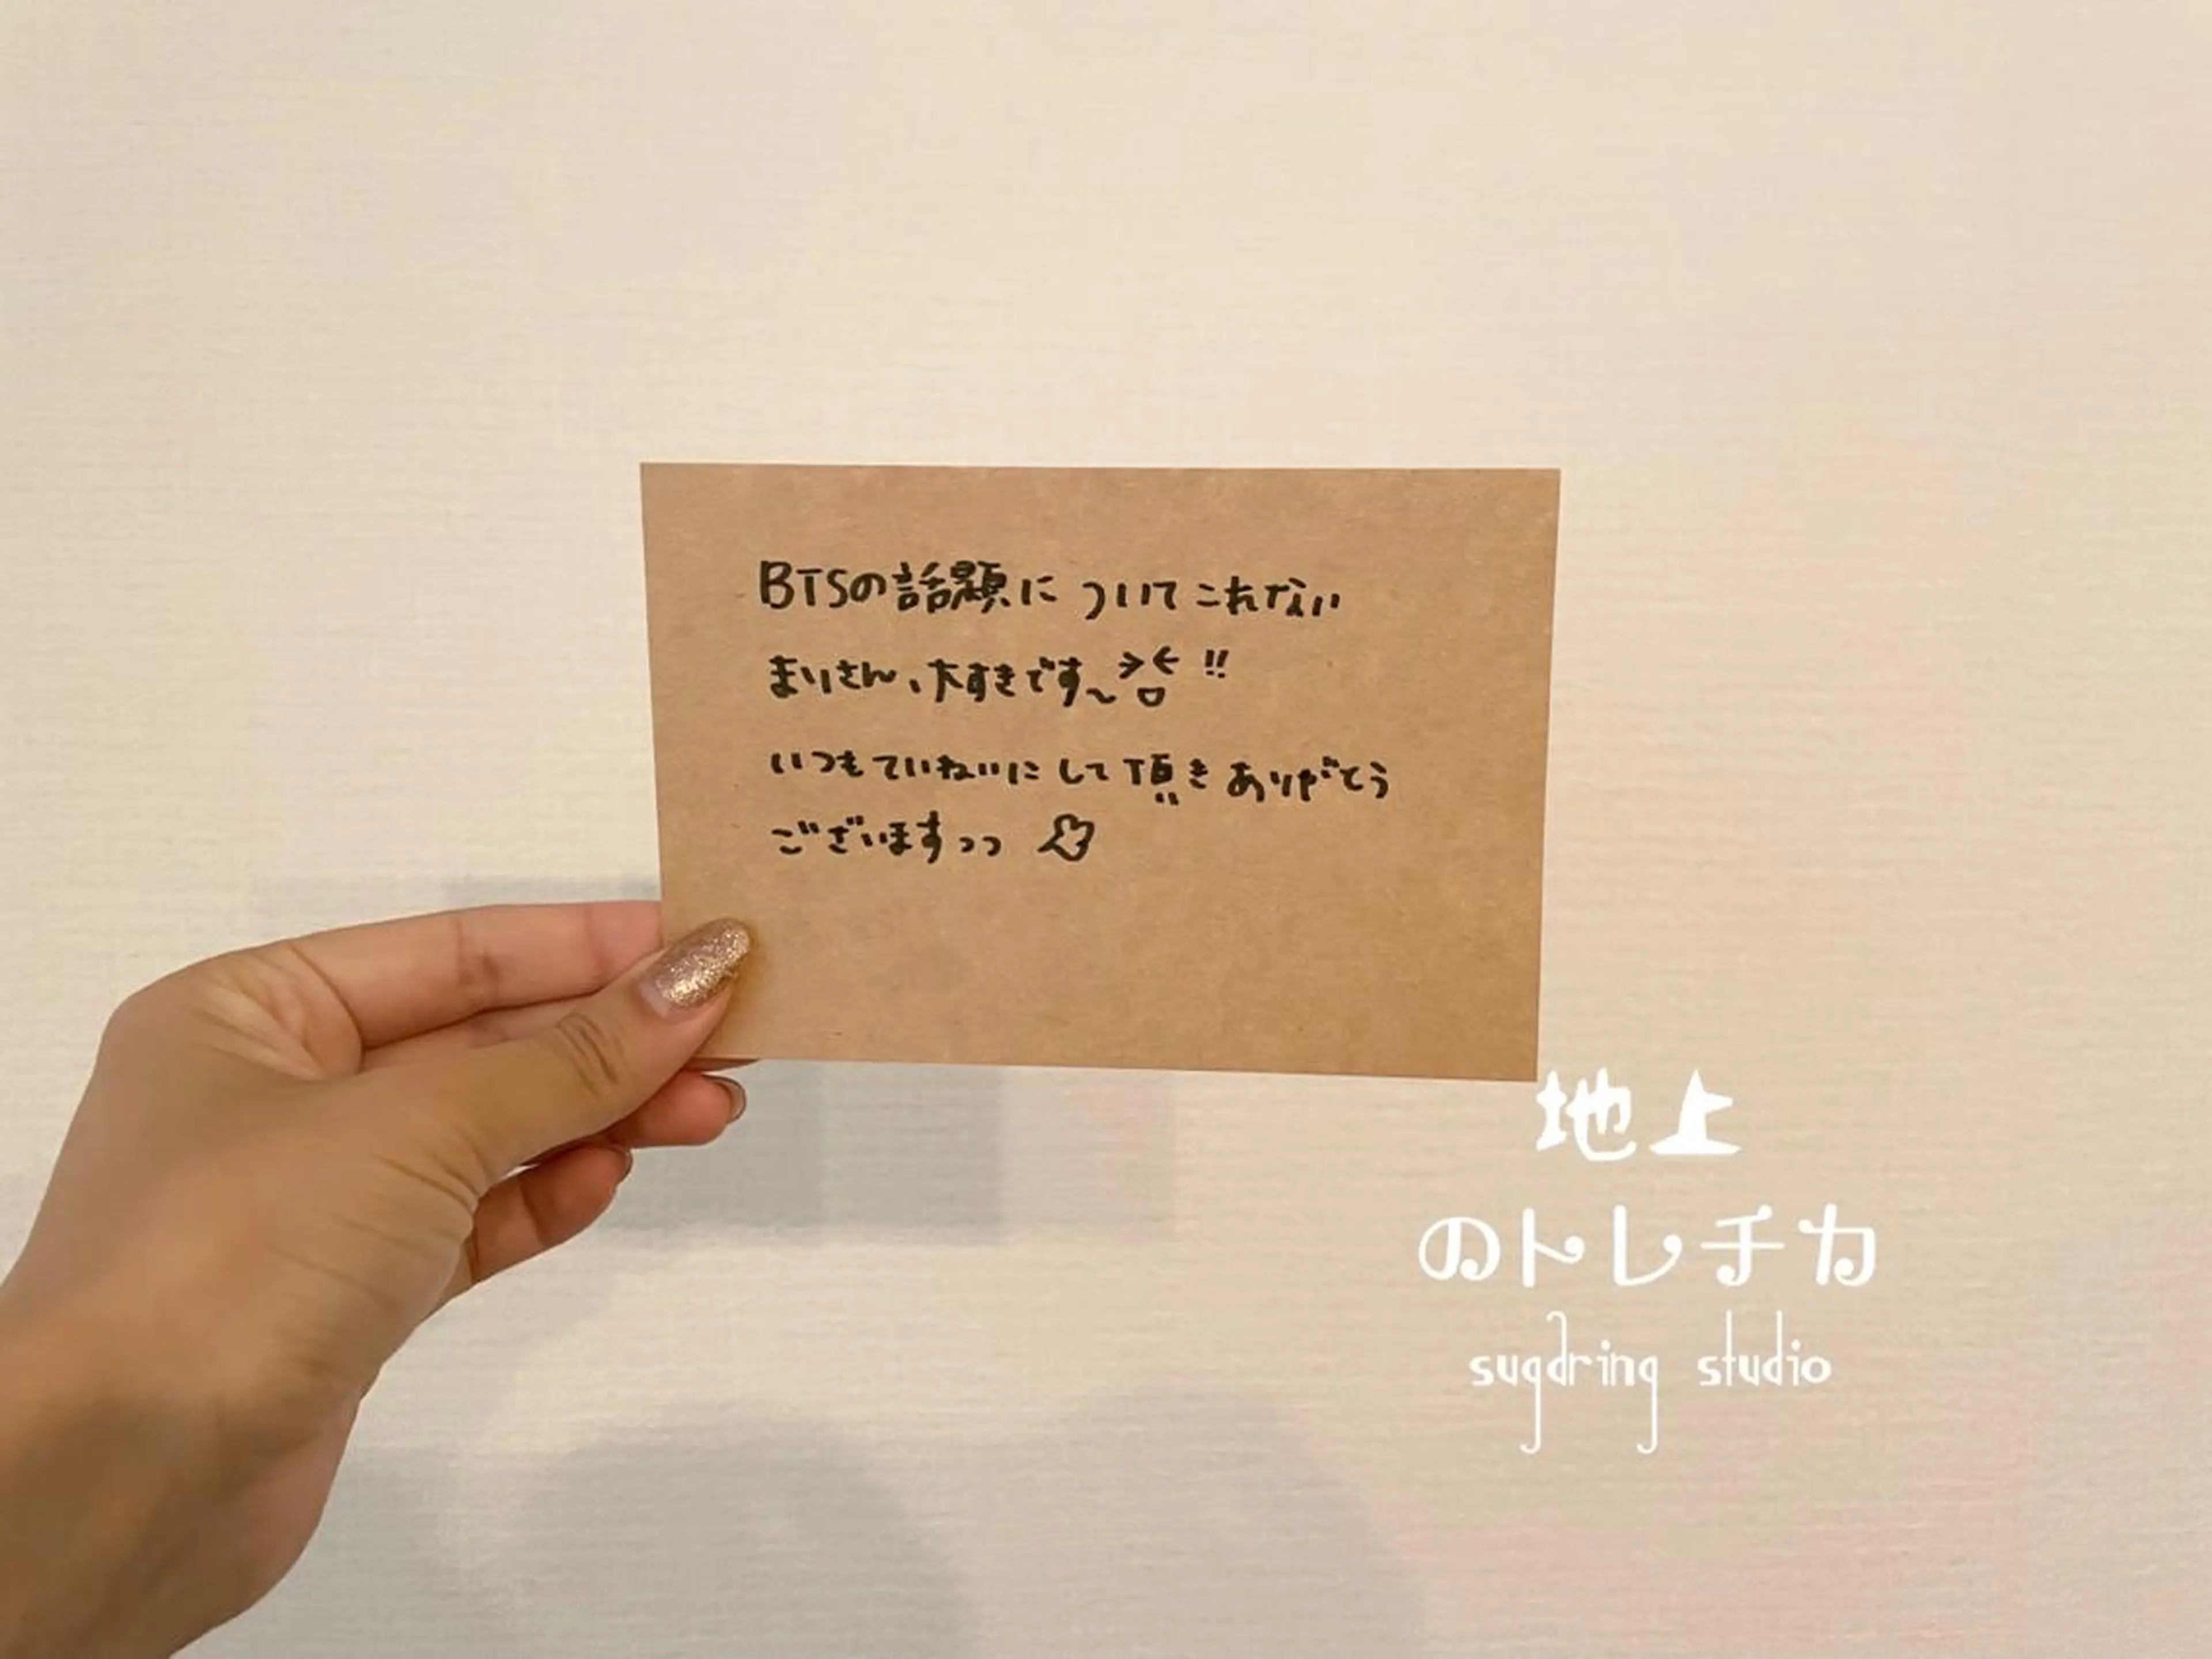 BTSの話題についてこれない
まりさん、大すきです〜!!
いつもていねいにして頂きありがとう
ございますっっ
地上
のトレチカ
sugdring studio